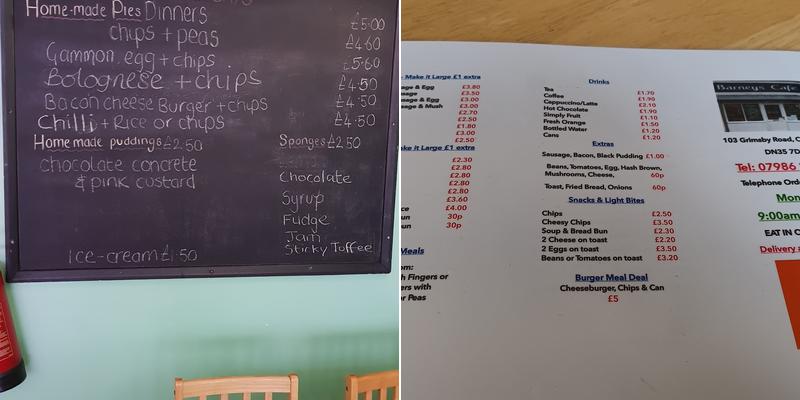 Home-made Pies Dinners
chips + peas £5.00
Gammon, egg + chips £4.60
Bolognese + chips £5.60
Bacon cheese Burger + chips £4.50
Chilli + Rice or chips £4.50
£4.50
Home made puddings £2.50
chocolate concrete
& pink custard
Ice-cream £1.50
Sponges £2.50
Chocolate
Syrup
Fudge
Jam
Sticky Toffee
- Make it Large £1 extra
sage & Egg £3.80
sage £3.50
sage & Egg £3.00
sage & Mush £3.00
£2.70
£2.50
£1.80
£3.00
£2.50
ke it Large £1 extra
£2.30
£2.80
£2.80
£2.80
£3.60
ce £4.00
un 30p
un 30p
Meals
om:
h Fingers or
ers with
or Peas
Drinks
Tea £1.70
Coffee £1.90
Cappuccino/Latte £2.10
Hot Chocolate £1.90
Simply Fruit £1.10
Fresh Orange £1.50
Bottled Water £1.20
Cans £1.20
Extras
Sausage, Bacon, Black Pudding £1.00
Beans, Tomatoes, Egg, Hash Brown,
Mushrooms, Cheese, 60p
Toast, Fried Bread, Onions 60p
Snacks & Light Bites
Chips £2.50
Cheesy Chips £3.50
Soup & Bread Bun £2.30
2 Cheese on toast £2.20
2 Eggs on toast £3.50
Beans or Tomatoes on toast £3.20
Burger Meal Deal
Cheeseburger, Chips & Can
£5
Barneys Cafe
103 Grimsby Road, C
DN35 7D
Tel: 07986
Telephone Ord
Mon
9:00am
EAT IN C
Delivery a